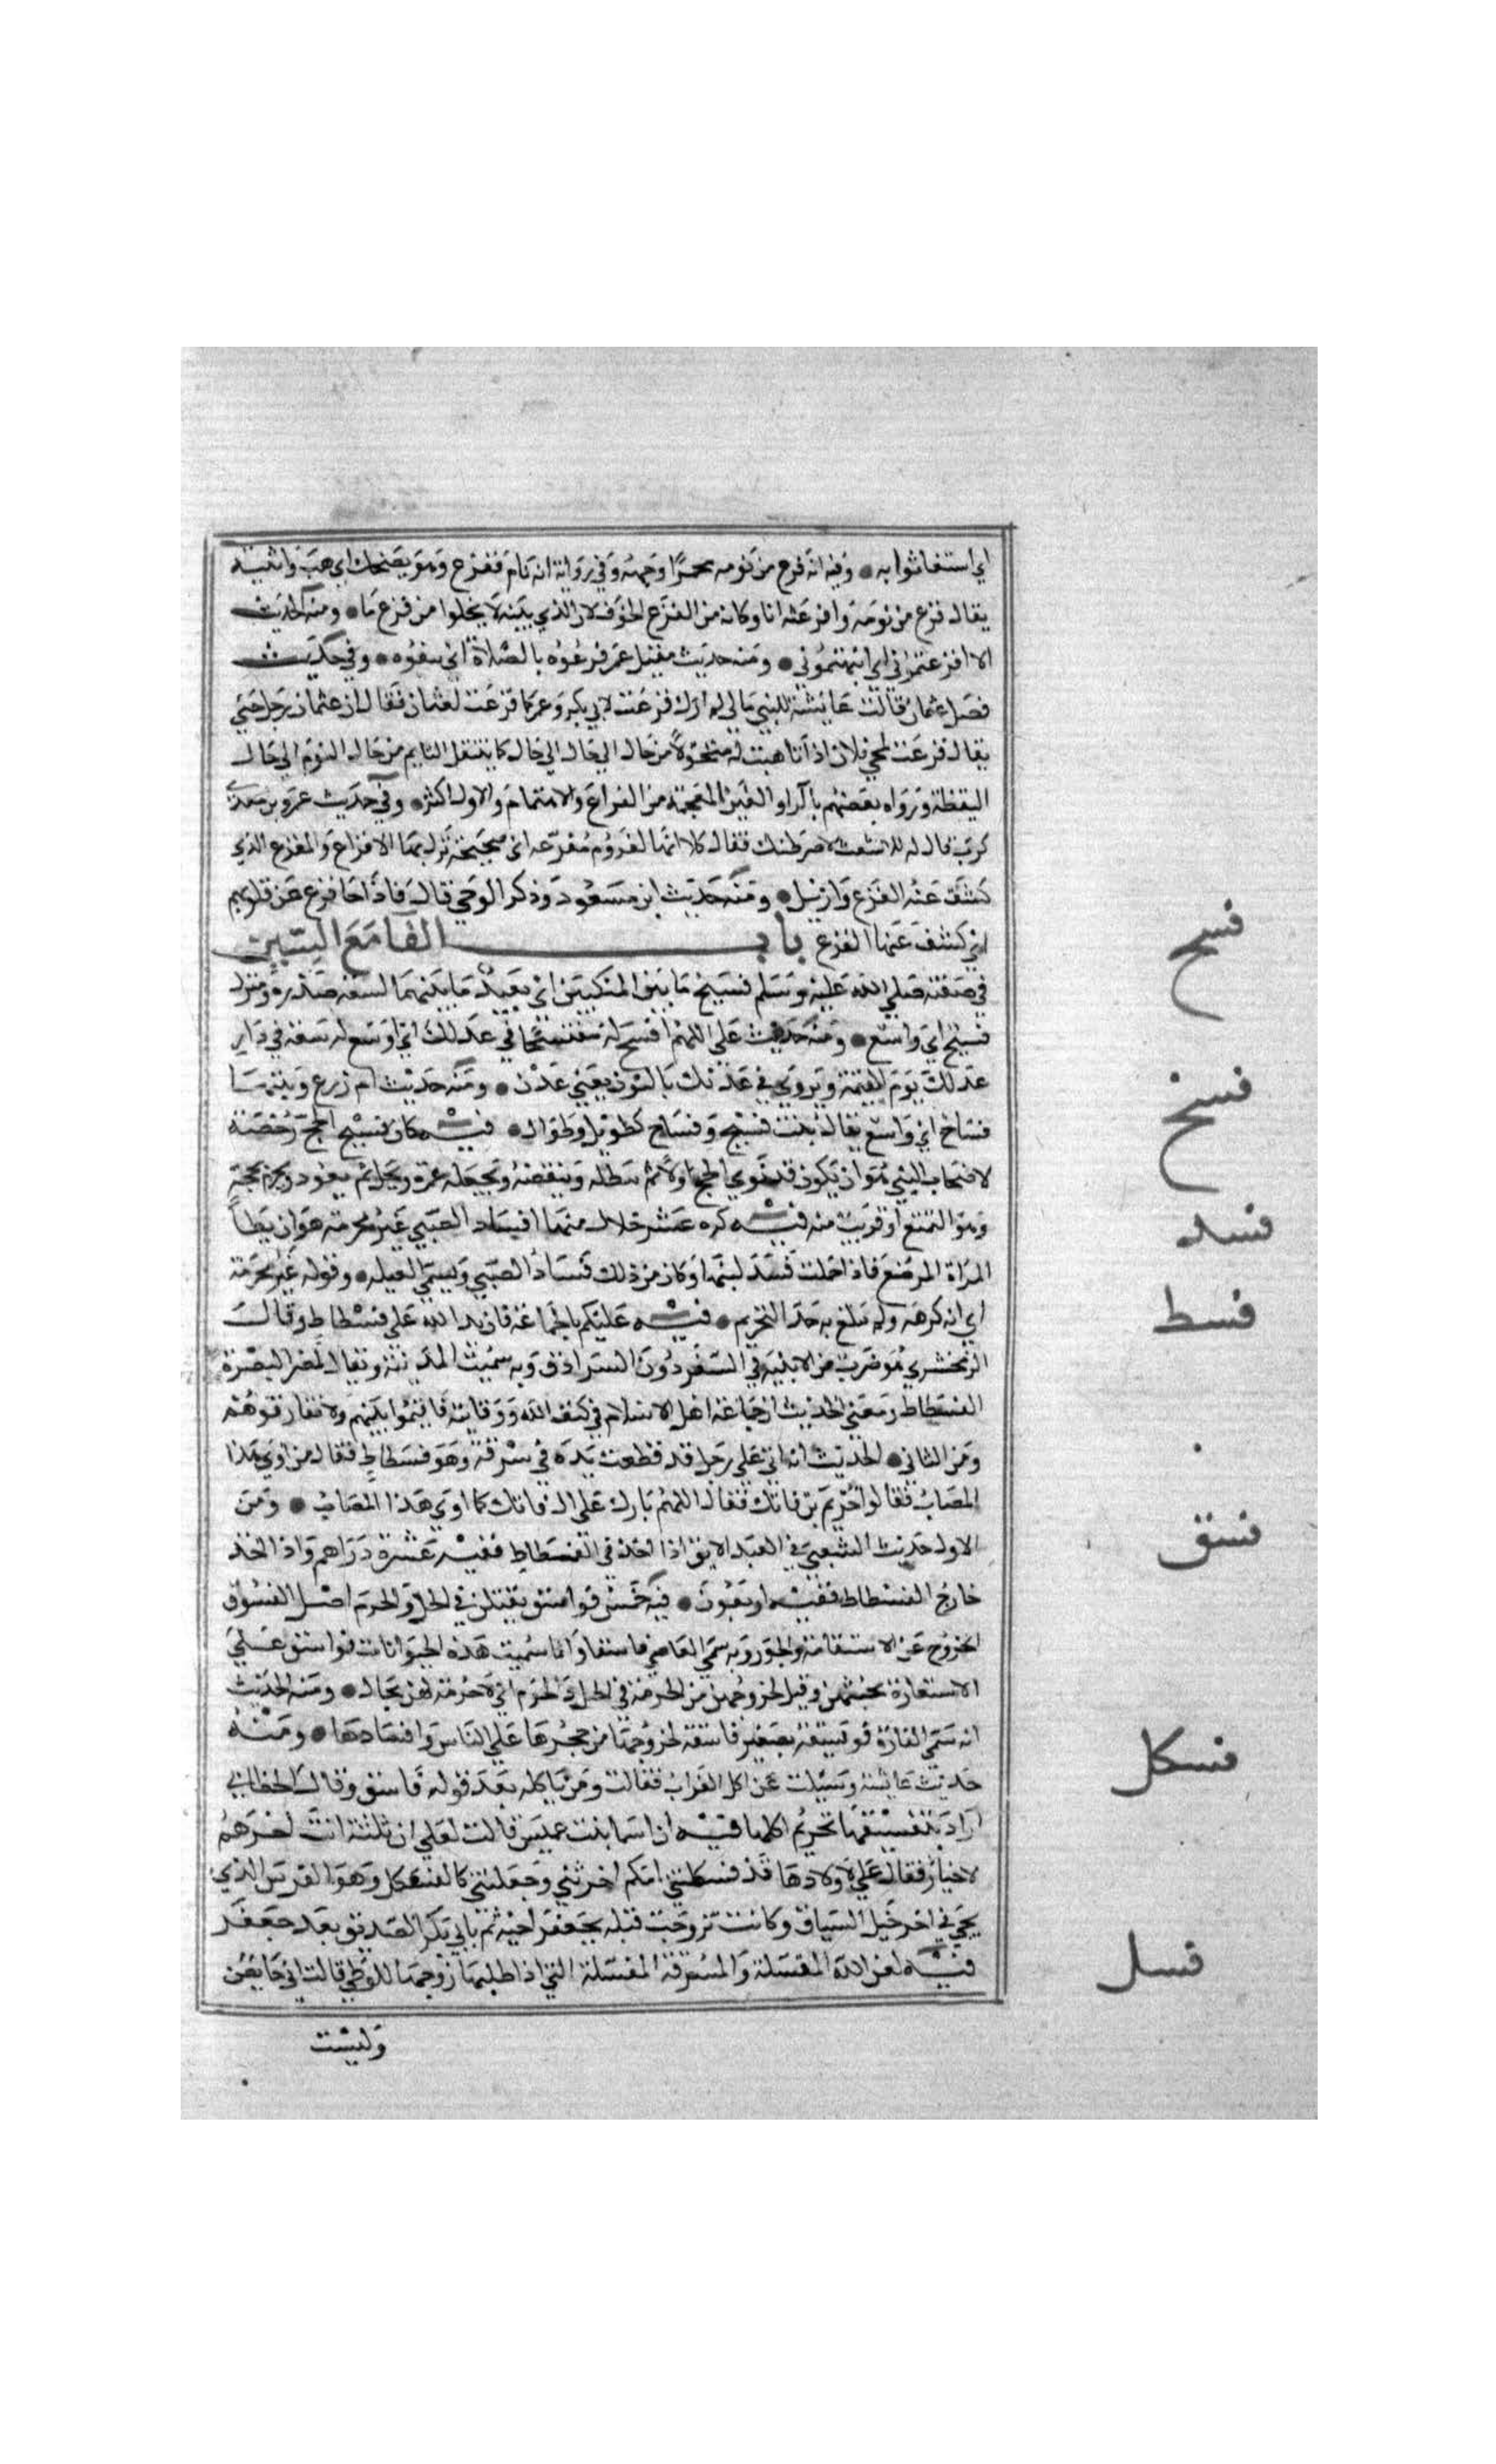 اي استغاثوا به • وفيه انه فزع من نومه محمرا وجهه وفي رواية انه نام ففزع وهو يضحك اي هب وانتبه
يقال فزع من نومه وافزعته انا وكانه من الفزع الخوف لان الذي ينبه لا يخلوا من فزع ما • ومنه الحديث
الا افزعتموني اي انبهتموني • ومنه حديث مقتل عمر فزعوه بالصلاة اي نبهوه • وفي حديث
فضل عثمان قالت عايشة للنبي مالي لم ارك فزعت لابي بكر وعمر كما فزعت لعثمان فقال ان عثمان رجل حيي
يقال فزعت لمجي فلان اذا تاهبت له متحولا من حال الي حال كما ينتقل النايم من حال النوم الي حال
اليقظة ورواه بعضهم بالراو الغين المعجمة من الفراغ والاهتمام والاول اكثر • وفي حديث عمرو بن معدي
كرب قال له الاشعث لاضرطنك فقال كلا انها لعزوم مفزعه اي صحيحة تنزل بها الافزاع والمفزع الذي
كشف عنه الفزع وازيل • ومنه حديث ابن مسعود وذكر الوحي قال فاذا جا فزع عن قلوبهم
اي كشف عنها الفزع باب الفا مع السين
فسح
في صفته صلي الله عليه وسلم فسيح ما بين المنكبين اي بعيد ما بينهما لسعة صدره ومنزل
فسيح اي واسع • ومنه حديث علي اللهم افسح له مفتسحا في عدلك اي اوسع له سعة في دار
عدلك يوم القيمة ويروي في عدنك بالنون يعني عدن • ومنه حديث ام زرع وبيتها
فسخ
فساح اي واسع يقال بيت فسيح وفساح كطويل وطوال • فيه كان فسخ الحج رخصة
لاصحاب النبي هو ان يكون قد نوي الحج اولا ثم يبطله وينقضه ويجعله عمرة ويحل ثم يعود يحرم بحجة
فسد
وهو التمتع او قريب منه فيه كره عشر خلال منها افساد الصبي غير محرمه هو ان يطا
المراة المرضع فاذا حملت فسد لبنها وكان من ذلك فساد الصبي ويسمي الغيله • وقوله غير محرمه
فسط
اي انه كرهه ولم يبلغ به حد التحريم • فيه عليكم بالجماعة فان يد الله علي فسطاط وقال
الزمخشري هو ضرب من الابنيه في السفر دون السرادق وبه سميت المدينة ويقال لمصر البصرة
الفسطاط ومعني الحديث ان جماعة اهل الاسلام في كنف الله ووقايته فاقيموا بينهم ولا تفارقوهم
ومن الثاني • الحديث انه اتي علي رجل قد قطعت يده في سرقة وهو فسطاط فقال من اوي هذا
المصاب فقالوا خريم بن فاتك فقال اللهم بارك علي ال فاتك كما اوي هذا المصاب • ومن
الاول حديث الشعبي في العبد الابق اذا اخذ في الفسطاط ففيه عشرة دراهم واذا اخذ
فسق
خارج الفسطاط ففيه اربعون • فيه خمس فواسق يقتلن في الحل والحرم اصل الفسوق
الخروج عن الاستقامة والجور وبه سمي العاصي فاسقا وانما سميت هذه الحيوانات فواسق علي
الاستعارة لخبثهن وقيل لخروجهن من الحرمة في الحل والحرم اي لا حرمة لهن بحال • ومنه الحديث
انه سمي الفارة فويسقة تصغير فاسقة لخروجها من جحرها علي الناس وافسادها • ومنه
حديث عايشة وسيلت عن اكل الغراب فقالت ومن ياكله بعد قوله فاسق وقال الخطابي
فسكل
اراد بتفسيقها تحريم اكلها فيه ان اسما بنت عميس قالت لعلي ان ثلثة انت اخرهم
لاخيار فقال علي لاولادها قد فسكلتني امكم اخرتني وجعلتني كالفسكل وهو الفرس الذي
يجي في اخر خيل السباق وكانت تزوجت قبله بجعفر اخيه ثم بابي بكر الصديق بعد جعفر
فسل
فيه لعن الله المفسلة والمسوفة المفسلة التي اذا طلبها زوجها للوطي قالت اني حايض
وليست